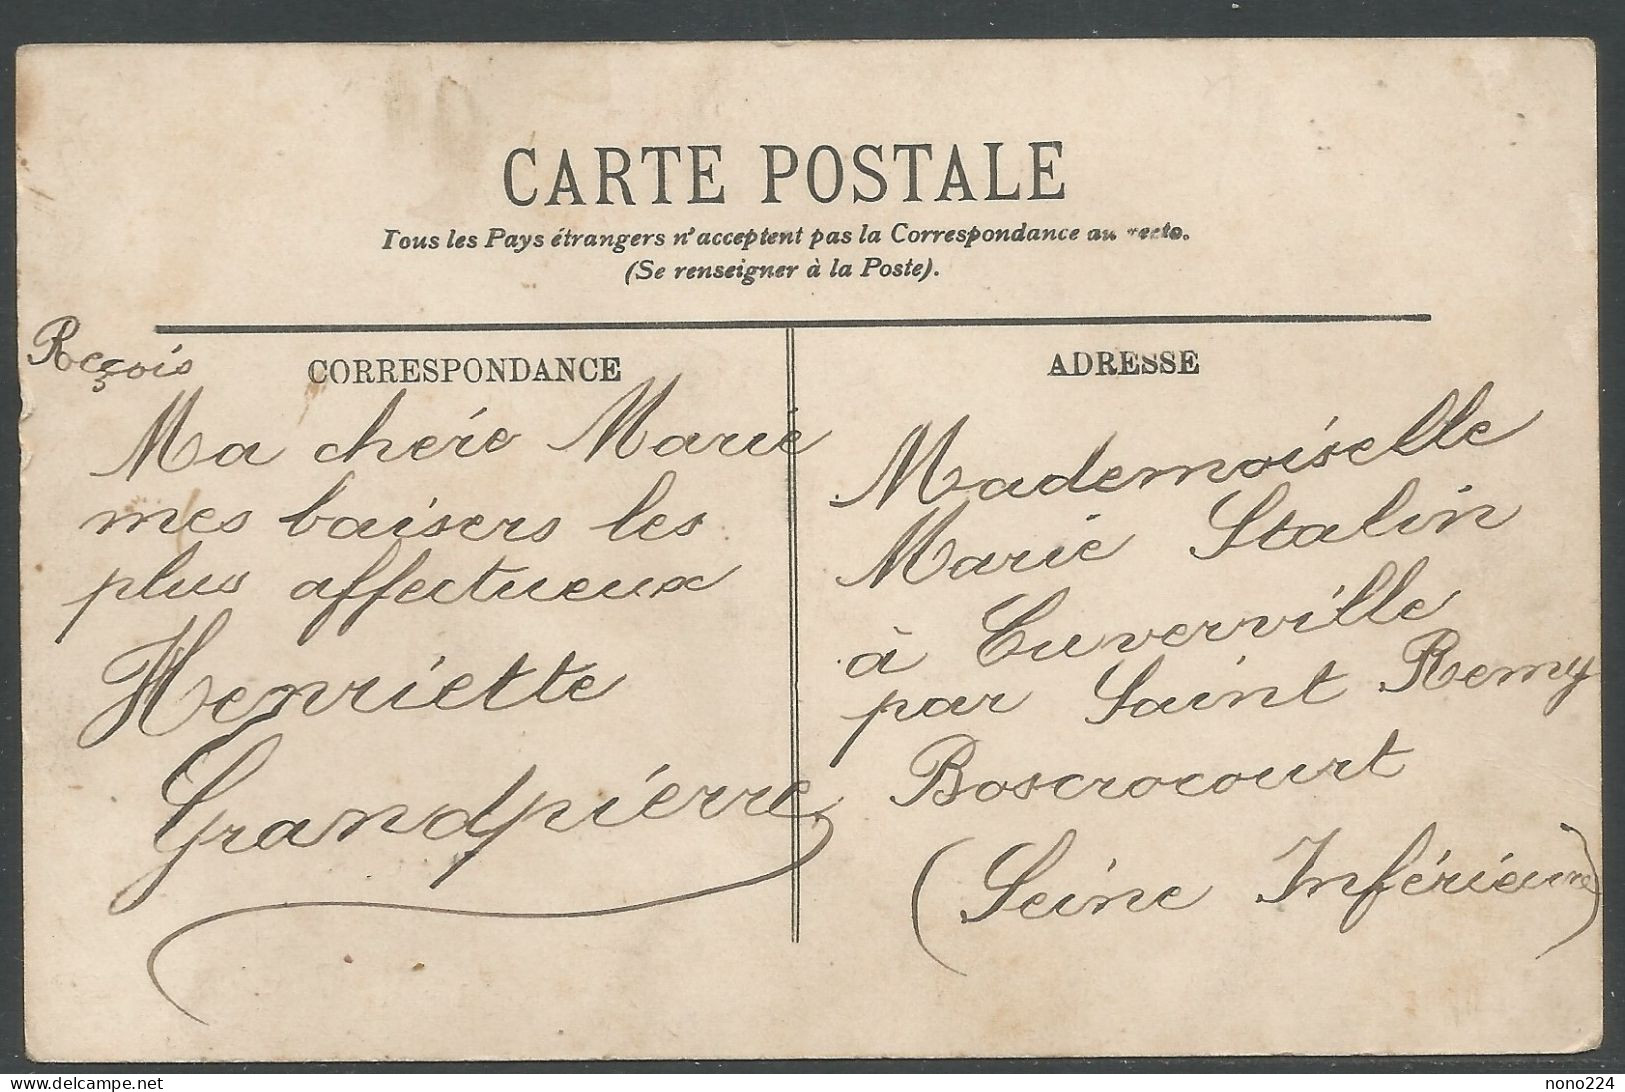 CARTE POSTALE
Tous les Pays étrangers n'acceptent pas la Correspondance au recto.
(Se renseigner à la Poste).
CORRESPONDANCE
Reçois
Ma chére Marie
mes baisers les
plus affectueux
Henriette
Grandpierre
ADRESSE
Mademoiselle
Marie Stalin
à Cuverville
par Saint Remy
Boscrocourt
(Seine Inférieure)
delcampe.net
nono224